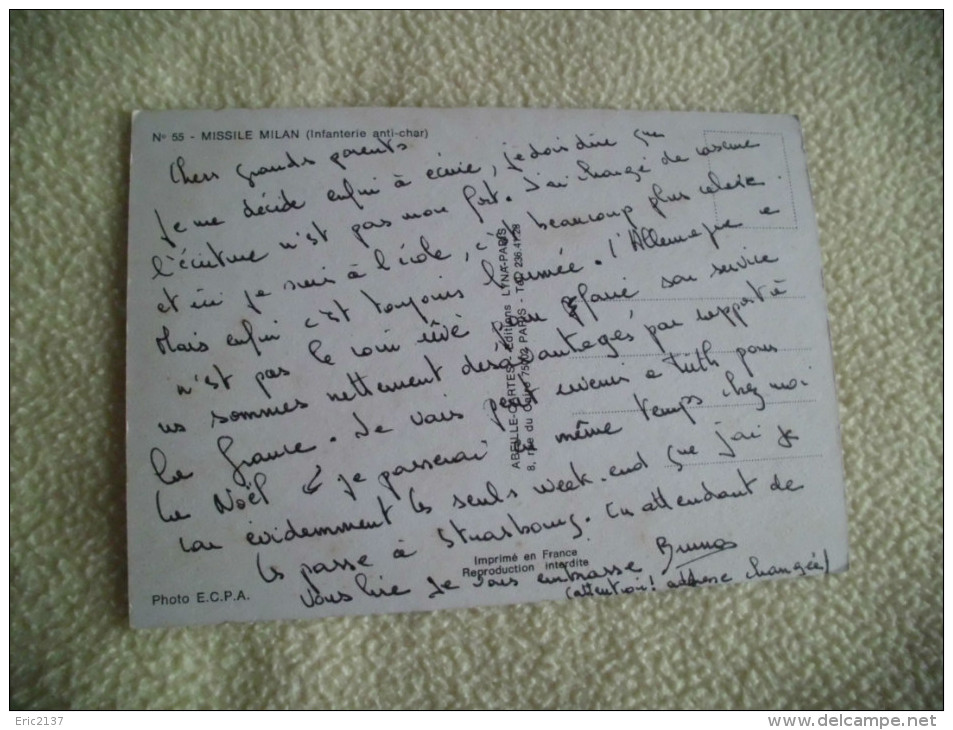 N° 55 - MISSILE MILAN (Infanterie anti-char)
Chers grands parents
Je me décide enfin à écrire, je dois dire que
l'écriture n'est pas mon fort. J'ai changé de caserne
et ici je suis à l'école, c'est beaucoup plus relaxe.
Mais enfin c'est toujours l'armée. l'Allemagne
n'est pas le coin rêvé pour faire son service
ns sommes nettement desavantagés par rapport à
la France. Je vais peut revenir a pour
le Noël je passerai en même temps chez moi
car évidemment les seuls week-end que j'ai je
les passe à Strasbourg. En attendant de
vous lire Je vous embrasse Bruno
(attention! addresse changée)
ABEILLE-CARTES - Editions LYNA-PARIS
8, rue du Caire 75002 PARIS - Tél. 236.41.28
Imprimé en France
Reproduction interdite
Photo E.C.P.A.
Eric2137
http://www.delcampe.net